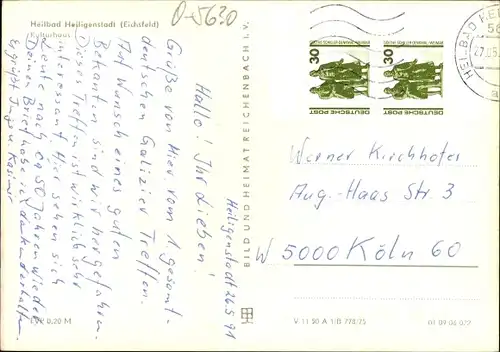 Heilbad Heiligenstadt (Eichsfeld)
Kulturhaus
O-5630
Heiligenstadt 26.5.91
Hallo! Ihr Lieben!
Grüße von hier. vom 1 gesamt-
deutschen Galizier Treffen.
Auf Wunsch eines guten
Bekannten sind wir hergefahren.
Dieses Treffen ist wirklich sehr
interessant. Hier sehen sich
Leute nach ca 50 Jahren wieder
Deinen Brief habe ich dankend erhalten.
Es grüßt Inge u. Kasimir
EVP 0,20 M
BILD UND HEIMAT REICHENBACH I. V.
V 11 50 A 1/B 778/75
01 09 04 022
30
DEUTSCHE POST
30
DEUTSCHE POST
HEILBAD HEI
56
27.05.
Werner Kirchhofer
Aug.-Haas Str. 3
W 5000 Köln 60